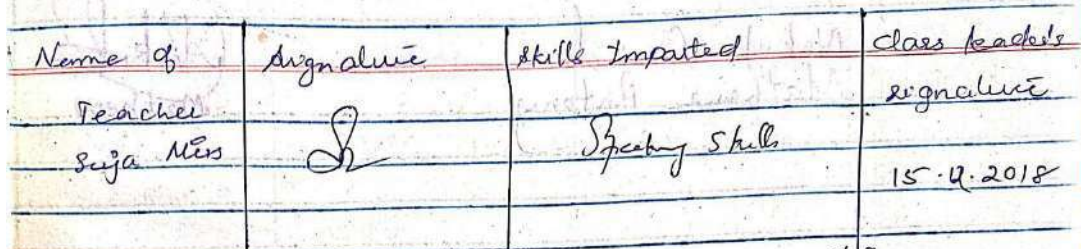 Name of Signature Skills Imparted Class leader's
Teacher signature
Suja Miss Speaking Skills
15.12.2018